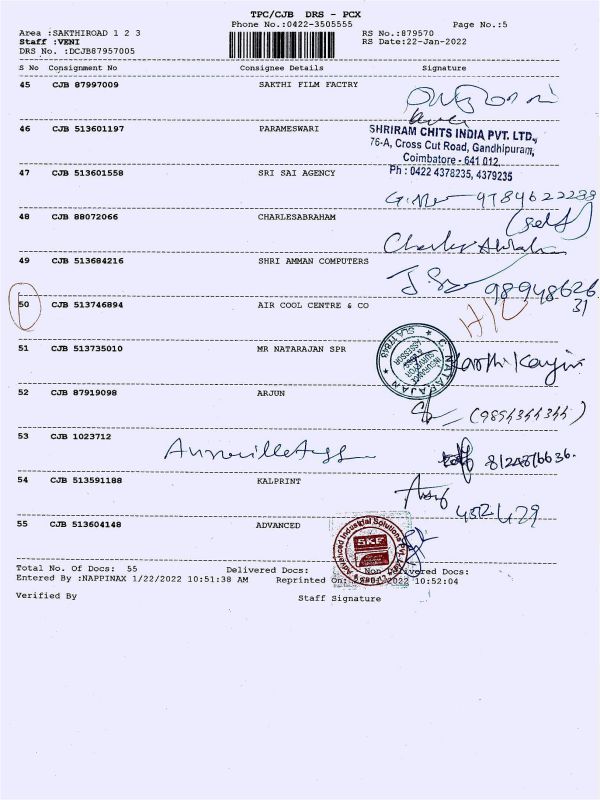 TPC/CJB DRS - PCX
Phone No.:0422-3505555
Page No.:5
Area :SAKTHIROAD 1 2 3
RS No.:879570
Staff :VENI
RS Date:22-Jan-2022
DRS No. :DCJB87957005
S No Consignment No Consignee Details Signature
45 CJB 87997009 SAKTHI FILM FACTRY
46 CJB 513601197 PARAMESWARI
SHRIRAM CHITS INDIA PVT. LTD.,
76-A, Cross Cut Road, Gandhipuram,
Coimbatore - 641 012.
Ph : 0422 4378235, 4379235
47 CJB 513601558 SRI SAI AGENCY
9789622288
(self)
48 CJB 88072066 CHARLESABRAHAM
49 CJB 513684216 SHRI AMMAN COMPUTERS
98948626
31
50 CJB 513746894 AIR COOL CENTRE & CO
H/C
51 CJB 513735010 MR NATARAJAN SPR
C. NATARAJAN
INSURANCE SURVEYOR
52 CJB 87919098 ARJUN
53 CJB 1023712
54 CJB 513591188 KALPRINT
55 CJB 513604148 ADVANCED
Advanced Industrial Solutions Pvt. Ltd.
SKF
Total No. Of Docs: 55 Delivered Docs: Non Delivered Docs:
Entered By :NAPPINAX 1/22/2022 10:51:38 AM Reprinted On: 2022 10:52:04
Verified By Staff Signature